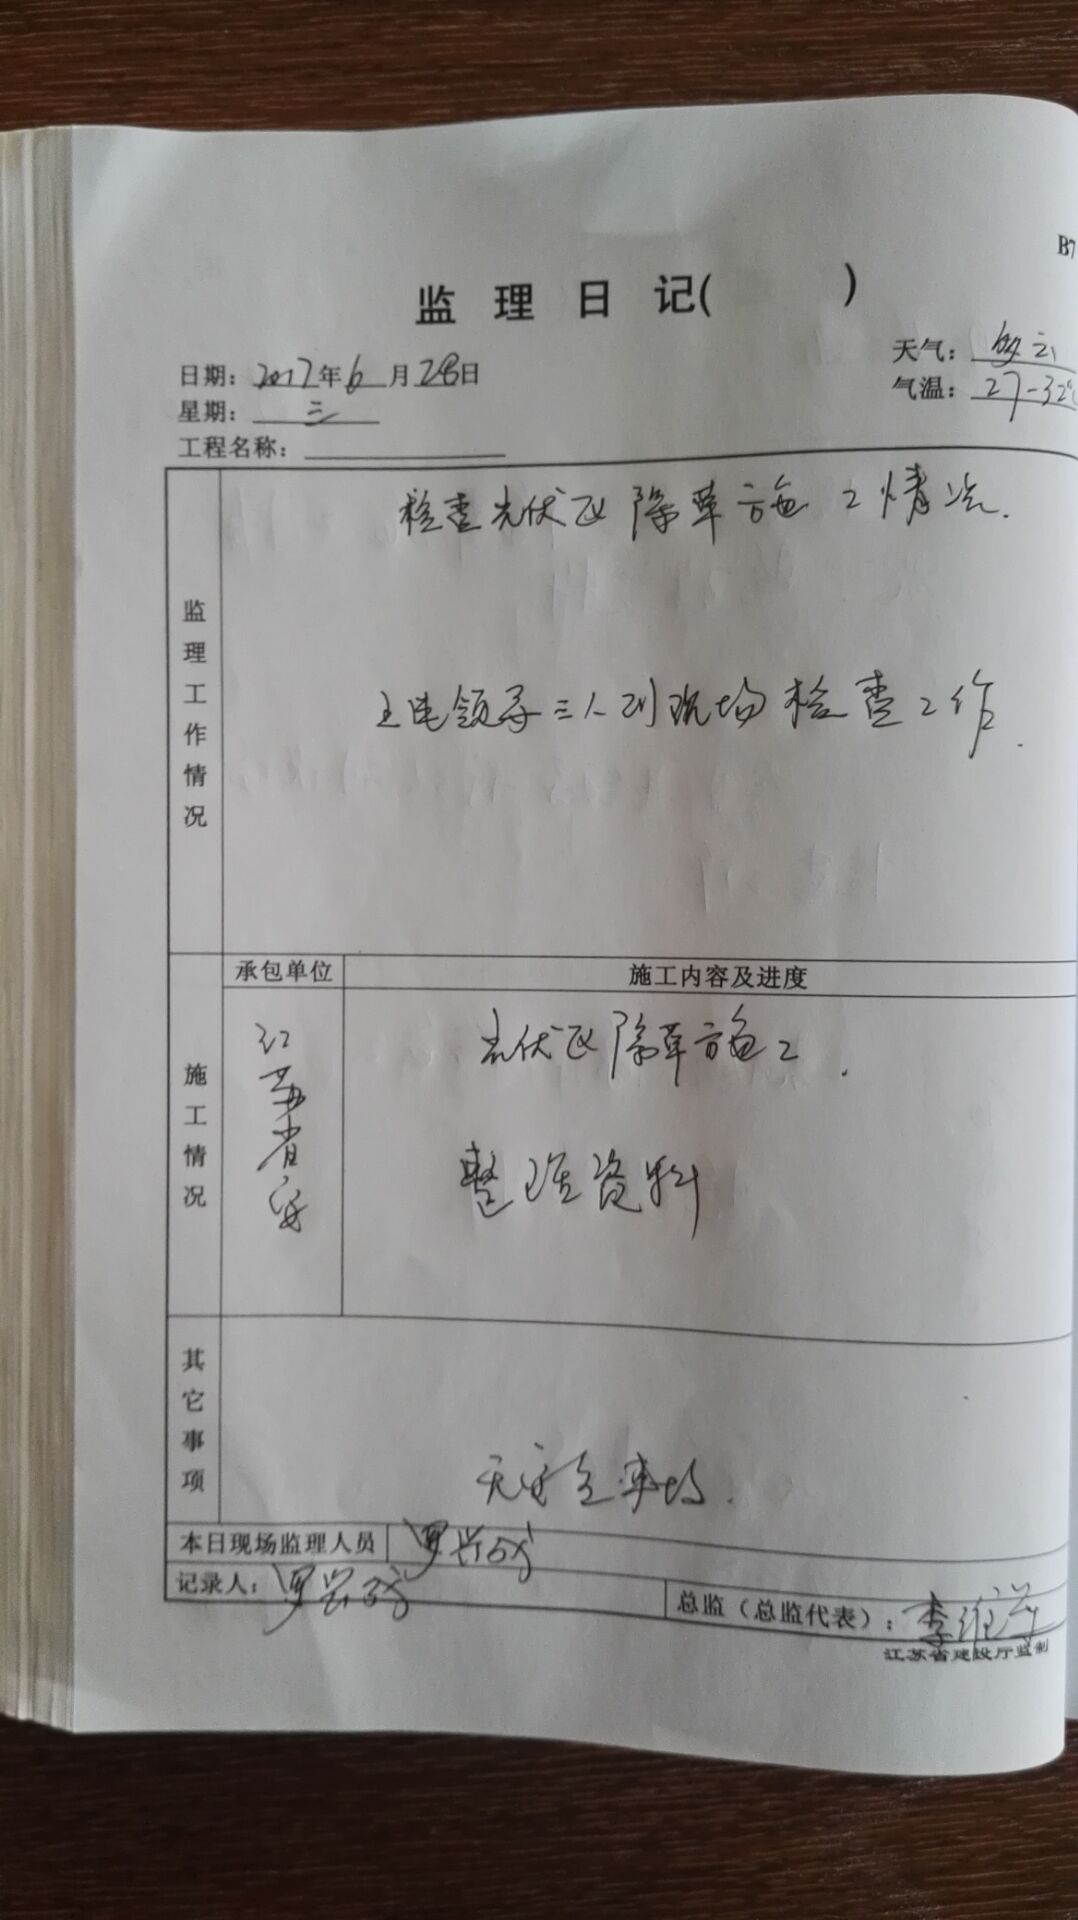 B7
监 理 日 记( )
天气：多云
日期：2017年6月28日
气温：27-32℃
星期：三
工程名称：
监理工作情况
检查光伏区除草施工情况.
上电领导三人到现场检查工作.
承包单位 施工内容及进度
施工情况
江苏省安
光伏区除草施工.
整理资料
其它事项
无安全事故.
本日现场监理人员 罗兴
记录人：罗兴
总监（总监代表）：李维
江苏省建设厅监制